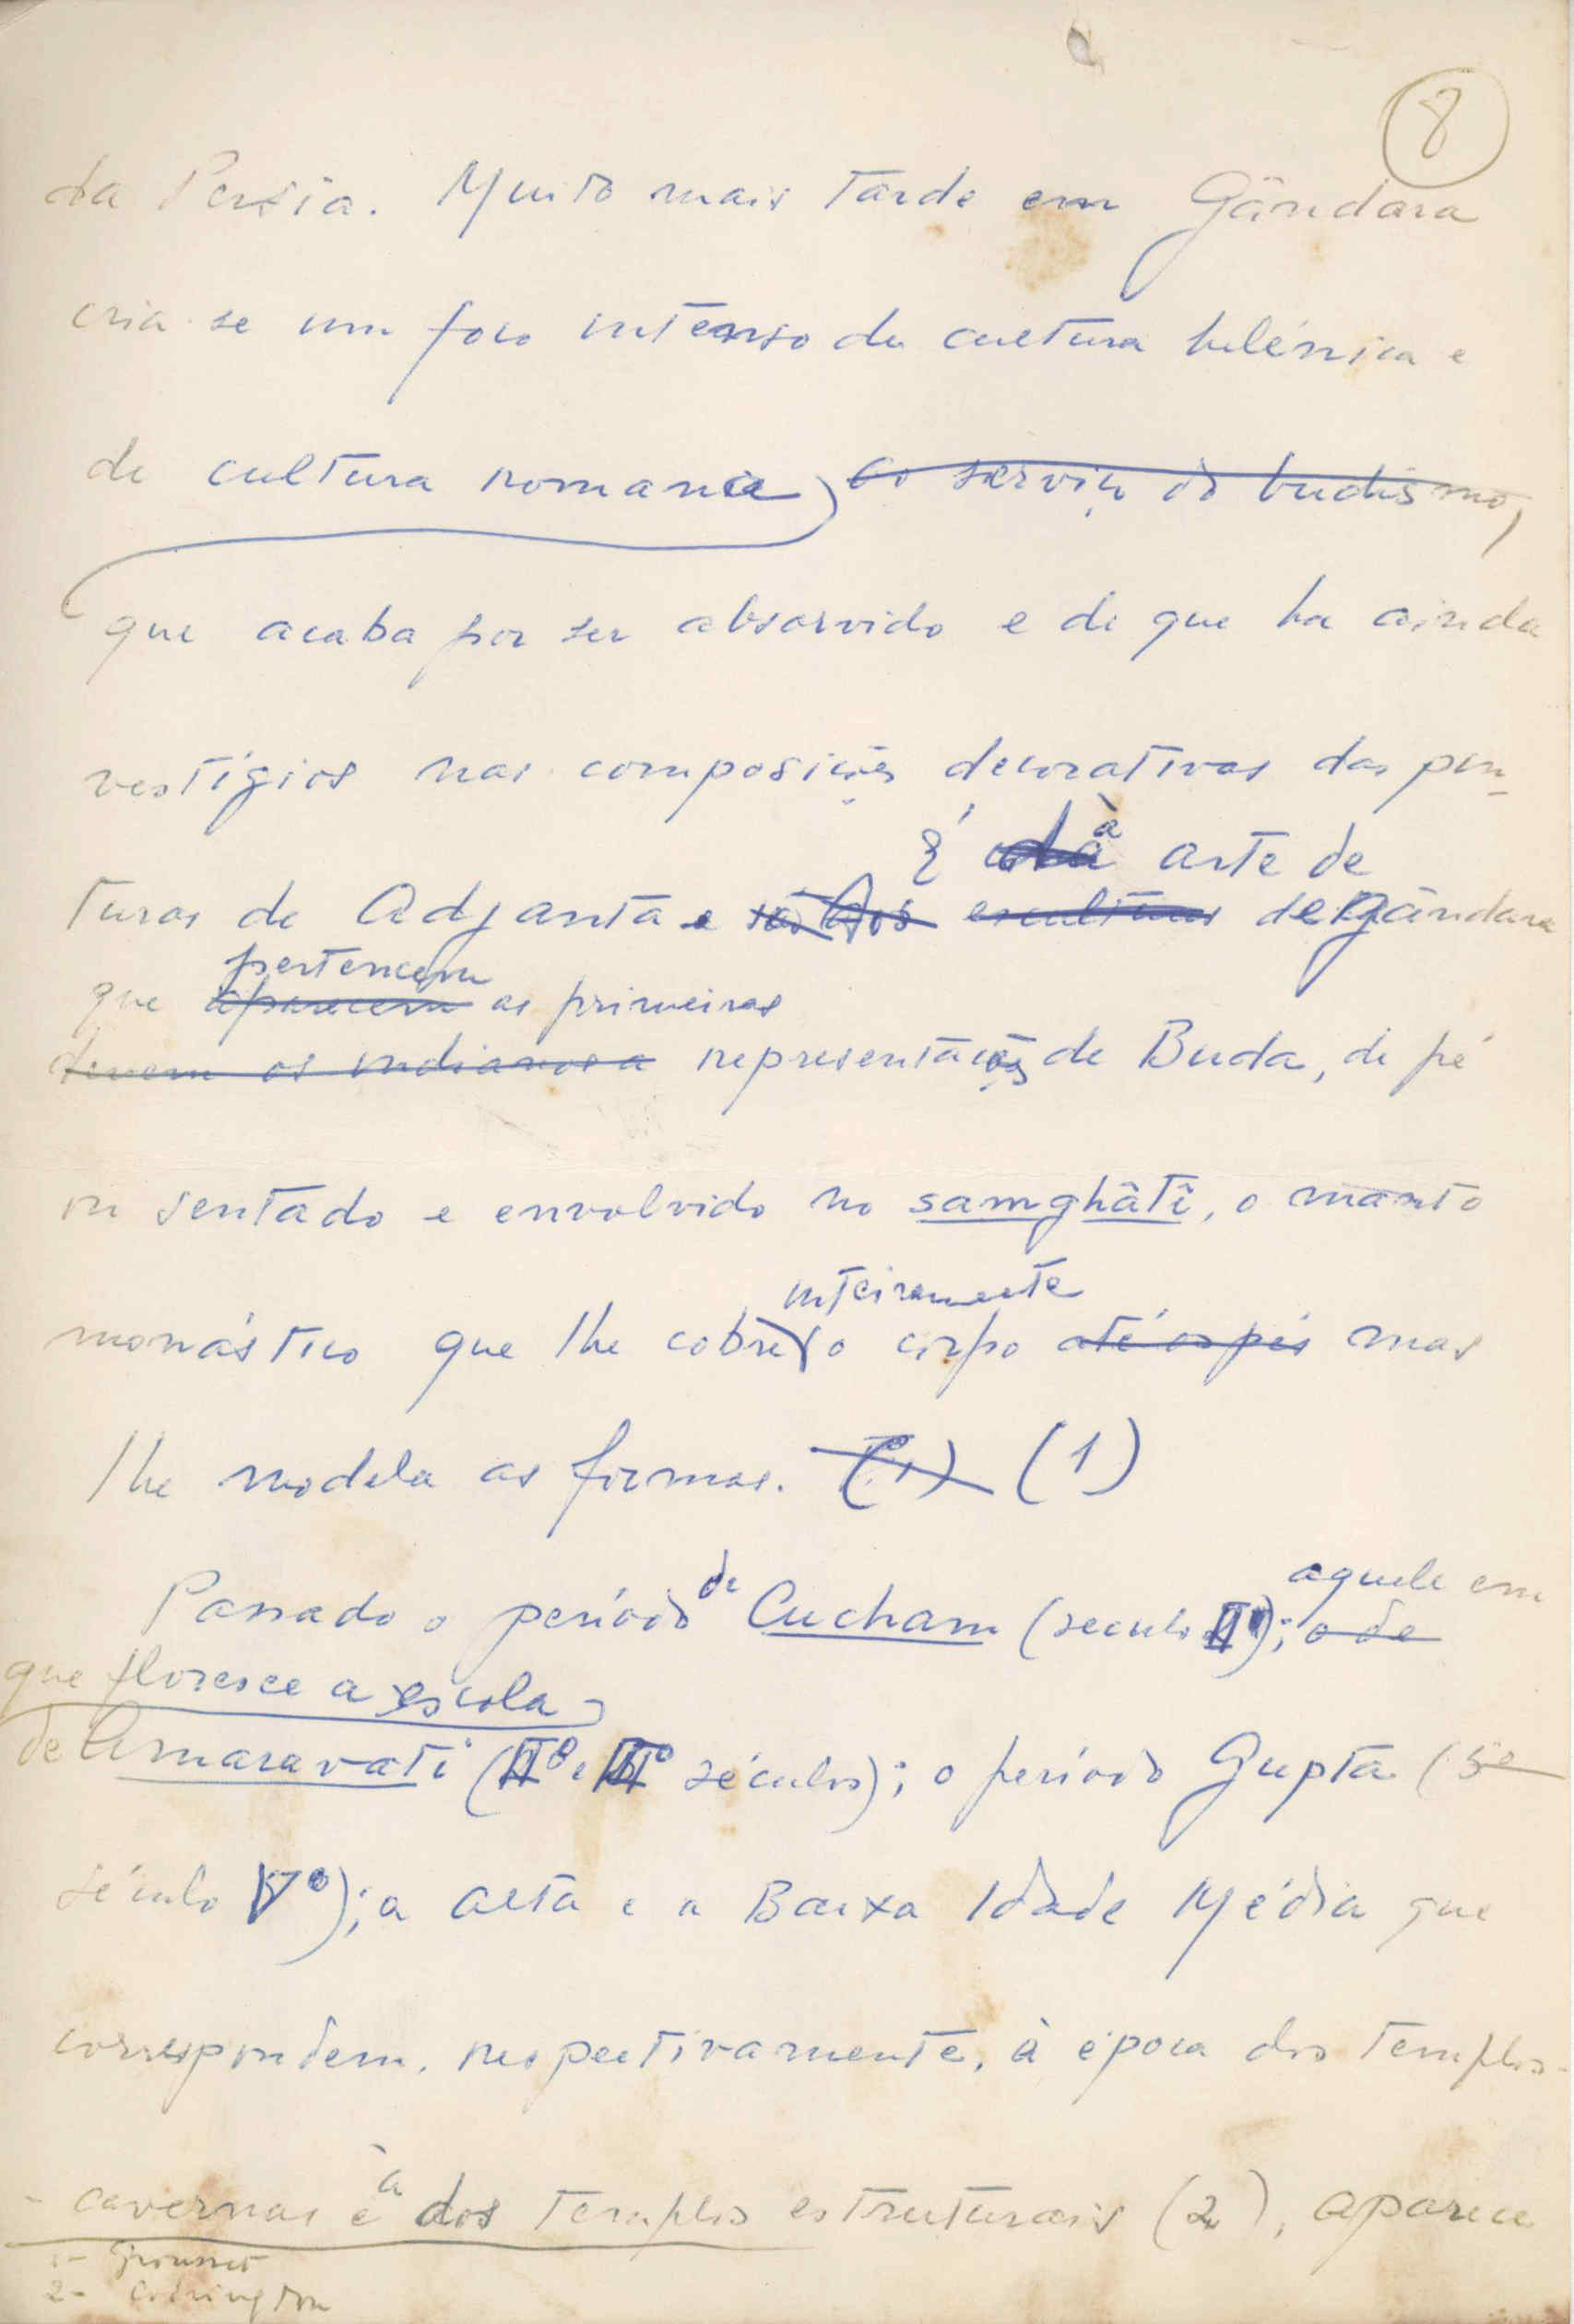 8
da Persia. Muito mais tarde em Gândara
cria-se um foco intenso de cultura helénica e
de cultura romana, ao serviço do budismo,
que acaba por ser absorvido e de que ha ainda
vestígios nas composições decorativas das pin-
É à arte de
turas de Adjanta e escultura de Gândara
pertencem
que aparecem as primeiras
devem os indianos a representações de Buda, de pé
ou sentado e envolvido no samghâtî, o manto
inteiramente
monástico que lhe cobre o corpo até os pés mas
lhe modela as formas. (1) (1)
aquele em
Passado o período de Cucham (seculo II); o de
que floresce a escola
de Amaravati (IIº e IIIº séculos); o período Gupta (
século Vº); a alta e a Baixa Idade Média que
correspondem, respectivamente, à época dos templos-
à
- cavernas e dos templos estruturais (2), aparece
1- Grousset
2- Codrington